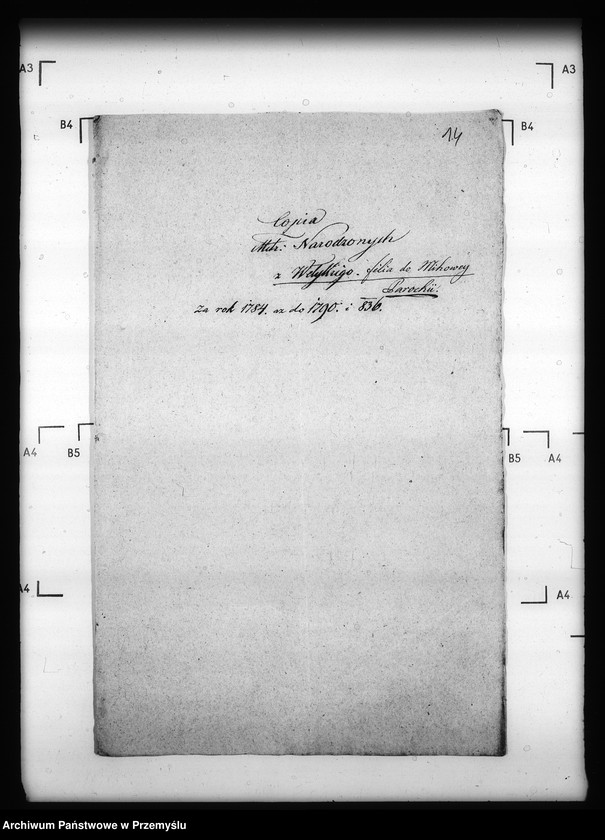 A3
A3
B4
B4
14
Copia
Metr: Narodzonych
z Welykiego. filia do Mihowey
Parochii.
Za rok 1784. az do 1790. i 836.
A4
B5
B5
A4
A4
A4
Archiwum Państwowe w Przemyślu